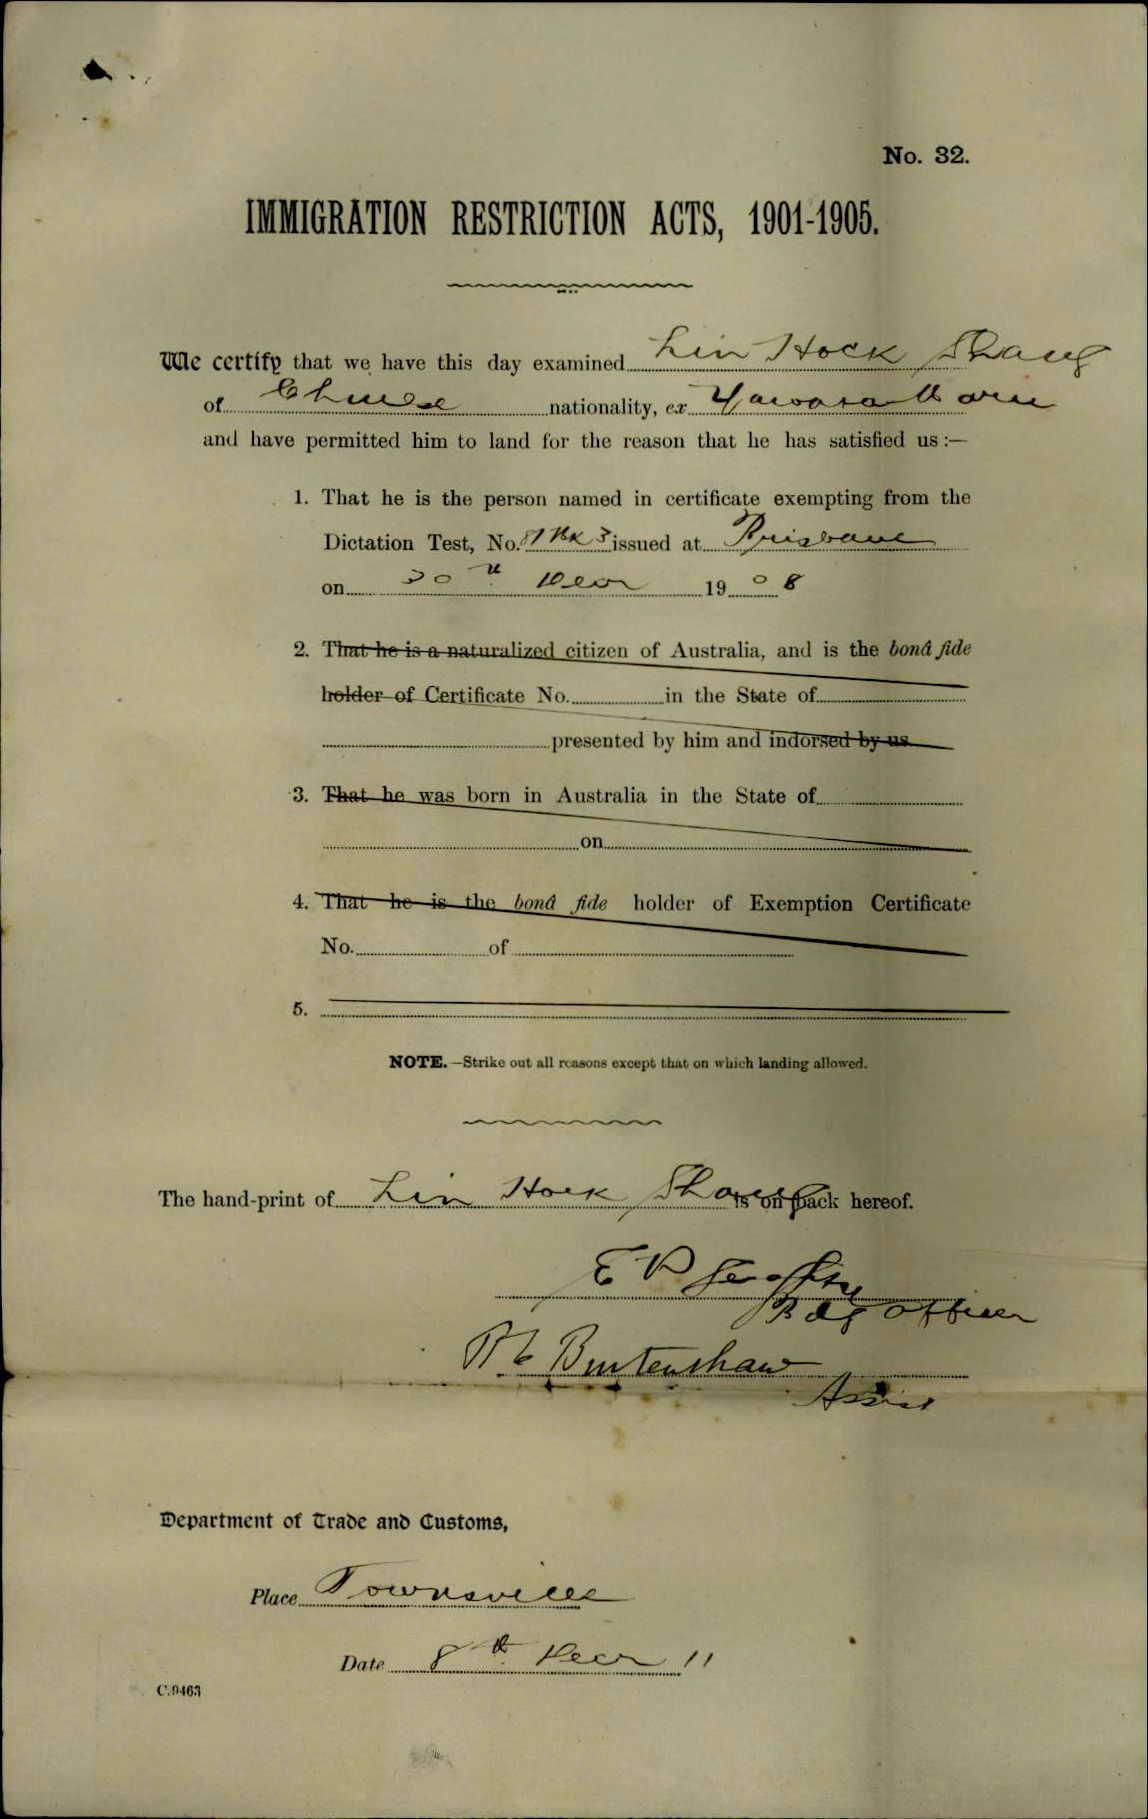 No. 32.
IMMIGRATION RESTRICTION ACTS, 1901-1905.
We certify that we have this day examined Lin Hock Shang
of Chinese nationality, ex Yawata Maru
and have permitted him to land for the reason that he has satisfied us :—
1. That he is the person named in certificate exempting from the
Dictation Test, No. issued at Brisbane
on 30th Decr 1908
2. That he is a naturalized citizen of Australia, and is the bonâ fide
holder of Certificate No. in the State of
presented by him and indorsed by us
3. That he was born in Australia in the State of
on
4. That he is the bonâ fide holder of Exemption Certificate
No. of
5.
NOTE.—Strike out all reasons except that on which landing allowed.
The hand-print of Lin Hock Shang is on back hereof.
Bdg Officer
Burtenshaw
Assist
Department of Trade and Customs,
Place Townsville
Date 8th Decr 11
C.9463